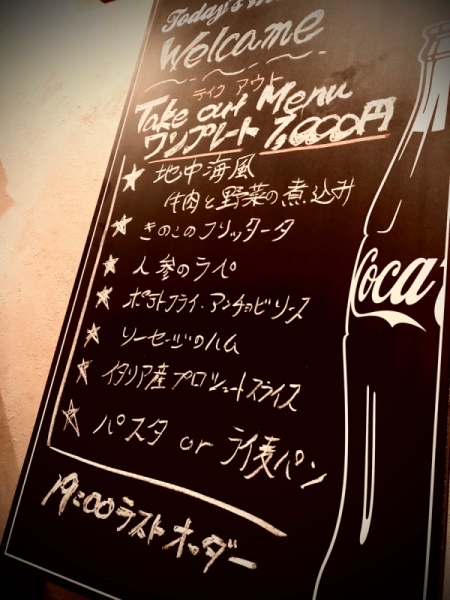 Today's
Welcome
テイクアウト
Take out Menu
ワンプレート 7,000円
★ 地中海風
牛肉と野菜の煮込み
★ きのこのフリッタータ
★ 人参のラペ
★ ポテトフライ・アンチョビソース
★ ソーセージのハム
★ イタリア産プロシュートスライス
★ パスタ or ライ麦パン
19:00 ラストオーダー
Coca